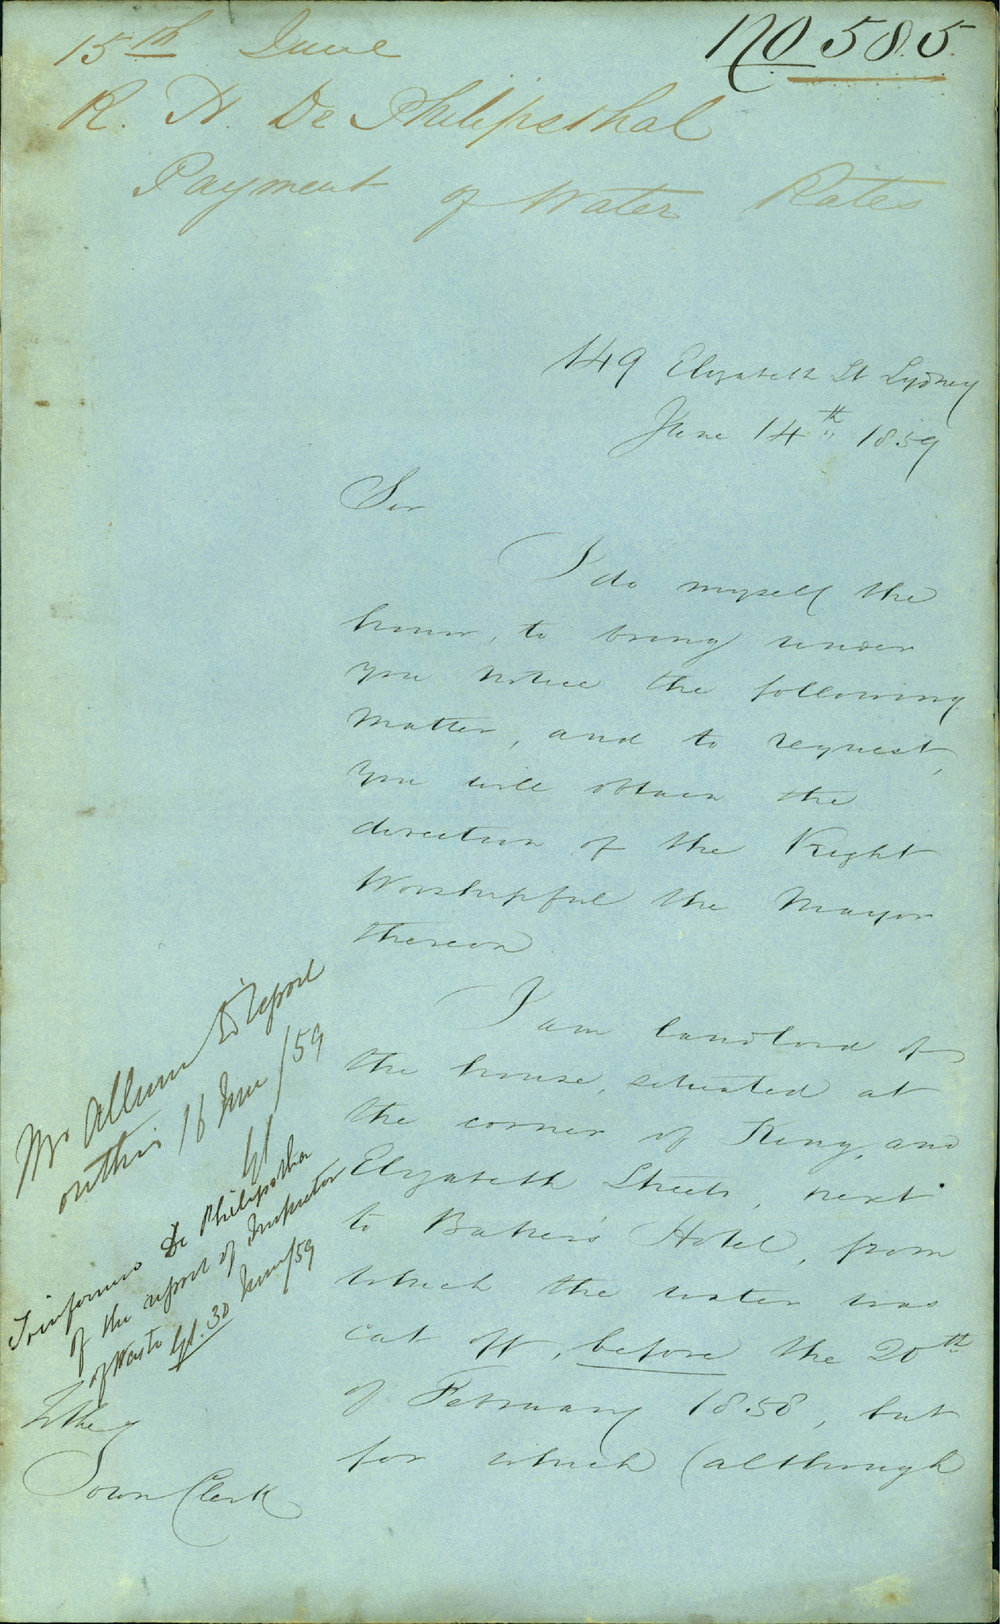 15th June
No 585.
R. H. De Phillipsthal
Payment of Water Rates
149 Elizabeth St Sydney
June 14th 1859
Sir
I do myself the
honor, to bring under
you notice the following
matter, and to request,
you will obtain the
direction of the Right
Worshipful the Mayor
thereon
I am landlord of
the house, situated at
the corner of King, and
Elizabeth Streets, next
to Baker's Hotel, from
which the water was
cut off, before the 20th
of February 1858, but
for which (although
Mr Allum to report
on this 16 June /59
Inform De Philipsthal
of the report of Inspector
of Waste 30 June/59
To the
Town Clerk